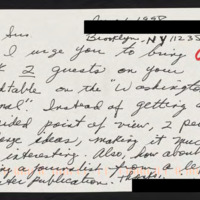 1998
Brooklyn, NY 1123
Sirs
I urge you to bring
2 guests on your
table on the "Washington
nal". Instead of getting a
ided point of view, 2 peo
ge ideas, making it much
interesting. Also, how about
a journalist from a le
publication. Thanks.